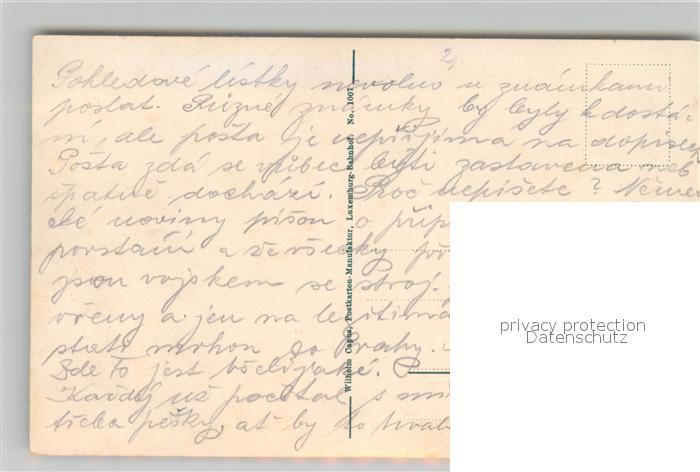 2,
Pohledové lístky nevolno se známkami
poslat. Různé známky by byly k dostá-
ní, ale pošta je nepřijímá na dopisech
Pošta zdá se vůbec býti zastavena neb
špatně dochází. Proč nepíšete? Němec-
ké noviny píšou o příp
povstání a že všecky
jsou vojskem se stroj.
vřeny a jen na legitima
smět mohou do Prahy.
Zde to jest všelijaké.
Každý už počítal s mí
třeba pěšky, ať by to trvalo
Wilhelm Capus, Postkarten-Manufaktur, Luxemburg-Bahnhof. No. 1007
privacy protection
Datenschutz